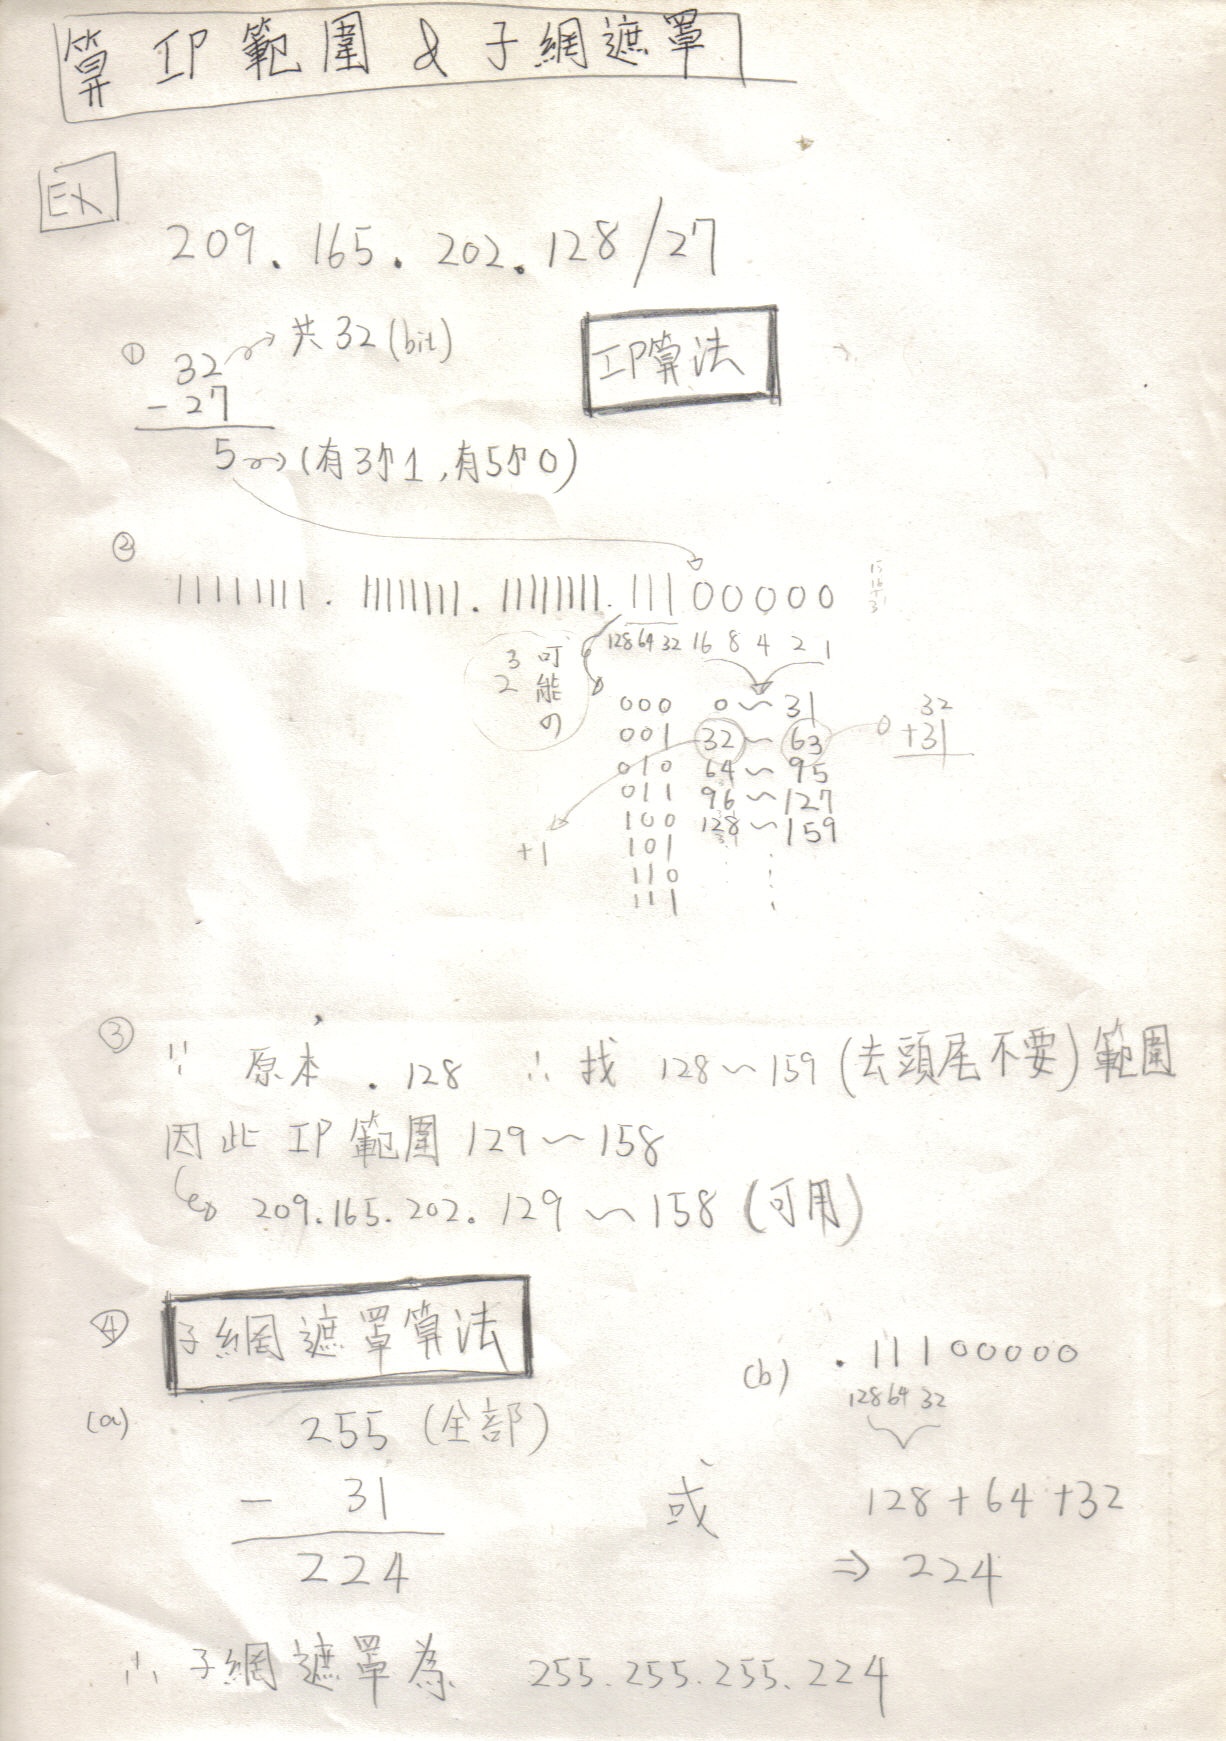 算 IP 範圍 & 子網遮罩
EX
209.165.202.128/27
IP算法
① 32 → 共32(bit)
- 27
5 → (有3个1,有5个0)
②
11111111.11111111.11111111.11100000
128 64 32 16 8 4 2 1
3
2
可能の
000 0~31
001 32~63
010 64~95
011 96~127
100 128~159
101
110
111
32
+31
+1
③ ∵ 原本 .128 ∴ 找 128~159(去頭尾不要)範圍
因此 IP 範圍 129~158
↳ 209.165.202.129~158(可用)
④ 子網遮罩算法
(a) 255 (全部)
- 31
224
或
(b) .11100000
128 64 32
128+64+32
⇒ 224
∴ 子網遮罩為 255.255.255.224